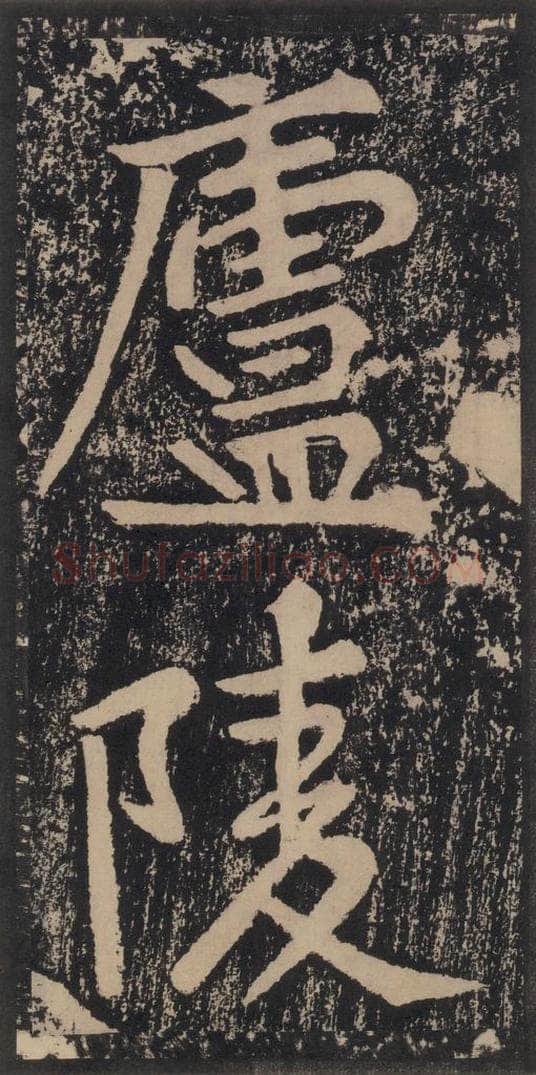 盧陵
Shufaziliao.COM